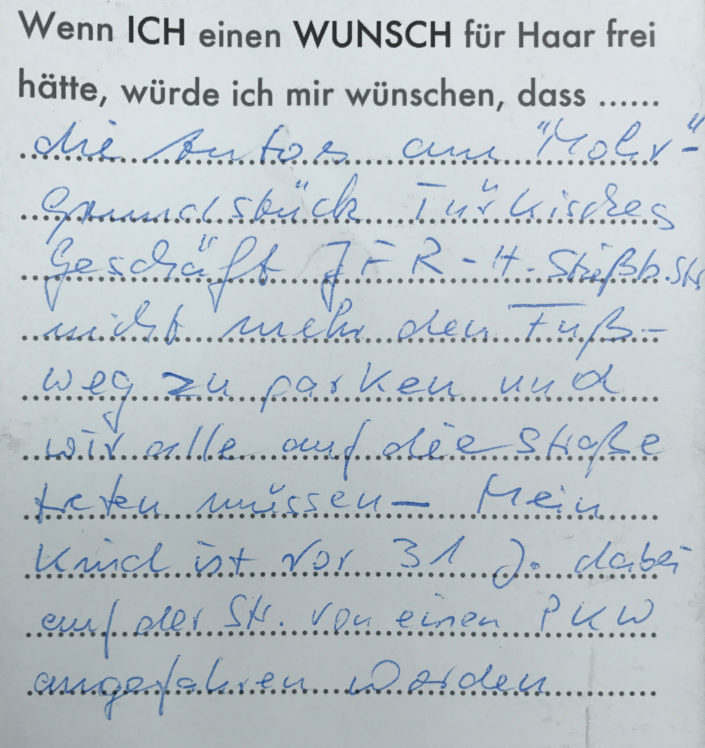 Wenn ICH einen WUNSCH für Haar frei
hätte, würde ich mir wünschen, dass ......
die Autos am "Mohr"-
grundstück Türkisches
Geschäft JFR-H.-Str.
nicht mehr den Fuß-
weg zu parken und
wir alle auf die Straße
treten müssen – Mein
Kind ist vor 31 J. dabei
auf der Str. von einen PKW
angefahren worden